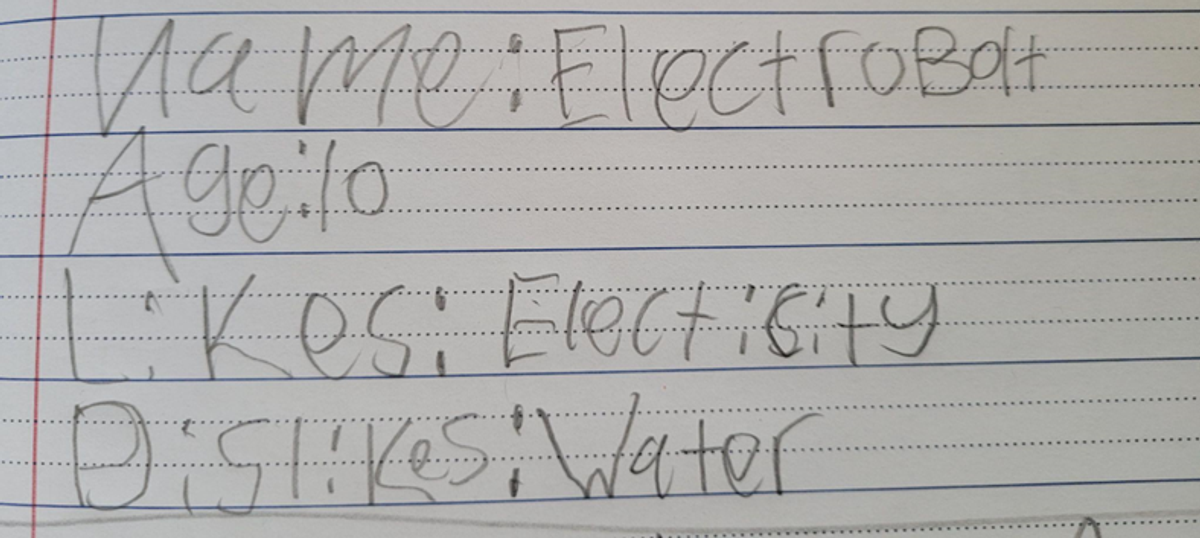 Name: ElectroBolt
Age: 10
Likes: Electisity
Dislikes: Water